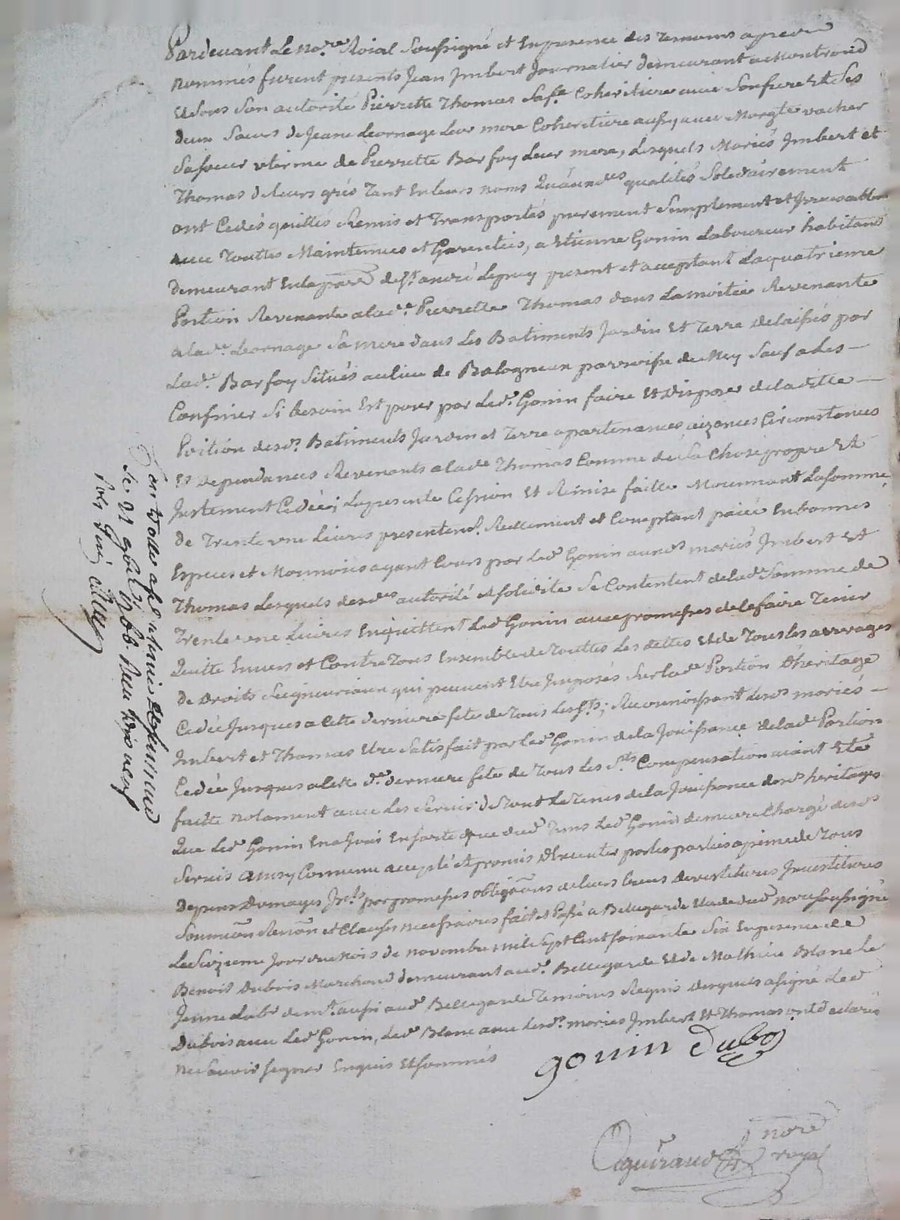 Pardevant Le no.re Roial Soussigné et En presence des Temoins apres
nommés furent presents Jean Imbert Journalier demeurant a Montrond
Et Sous Son autorité Pierrette Thomas Sa fe. Coheritiere avec Son frere Et Ses
deux Sœurs de Jeane Leornage Leur mere Coheritiere aussy avec Margte vacher
Sa sœur uterine de Pierrette Barfoy Leur mere, Lesquels Mariés Imbert et
Thomas de leurs grés Tant En leurs noms Qu'aux d. qualités Solidairement
ont Cedés quittés Remis et Transportés purement Simplement et Irrevocablem
avec Toutes Maintenues et Garenties, a Etienne Gonin Laboureur habitant
Demeurant En la parre de St. andré Le puy present et acceptant La quatrieme
Portion Revenante a lad.e Pierrette Thomas dans La moitié Revenante
a lad.e Leornage Sa mere dans Les Batiments Jardin Et Terre delaissés par
Lad.e Barfoy Situés au lieu de Balogneux parroisse de Sauf a Les
Confiner Si besoin Est pour par Led. Gonin faire Et Disposer de la ditte
Portion desd. Batiments Jardin et Terre apartenances aizances Circonstances
Et Dependances Revenants a lad.e Thomas Comme de Sa Chose propre Et
Justement Cedée; La presente Cession Et Remise faitte Moiennant La somme
de Trente une Livres presentem.t Reellement et Comptant paiée En bonnes
Especes et Monnoies ayant Cours par Led. Gonin auxd. mariés Imbert Et
Thomas Lesquels desd. autorité et solidité Se Contentent de lad. Somme de
Trente une Livres En quittent Led. Gonin avec promesses de le faire Tenir
Quitte Envers et Contre Tous Ensemble de Toutes Les dettes Et de Tous Les arrerages
de Droits Seigneuriaux qui peuvent Etre Imposés Sur lad. Portion D'heritage
Cedée Jusques a Cette derniere fete de Tous Les Sts; Reconnoissant Lesd. mariés
Imbert et Thomas Etre Satisfait par Led. Gonin de la Jouissance de lad. Portion
Cedée Jusques a lad. de. derniere fete de Tous Les Sts Compensation aiant Eté
faitte notament avec Les Servis de la Jouissance desd. heritages
Que Led. Gonin En a Jouis En sorte que Led. Gonin demeure Chargé desd.
Servis ainsy Convenu accepté et promis Executer par les parties a peine de Tous
Depens Domages Ints. par promesses obligaons de leurs biens
Soumion Renon et Clauses necessaires fait et Passé a Bellegarde Etude dud. nore soussigné
Le Seizieme Jour du Mois de novembre mil Sept Cent Soixante Six En presence de
Benoit Dubois Marchand demeurant aud. Bellegarde Et de Mathieu Blanc le
Jeune aussi aud. Bellegarde Temoins Requis Desquels a signé Led.
Dubois avec Led. Gonin, Led. Blanc avec Lesd. mariés Imbert Et Thomas ont declaré
ne Savoir signer Enquis Et sommés
gonin Dubois
nore
royal